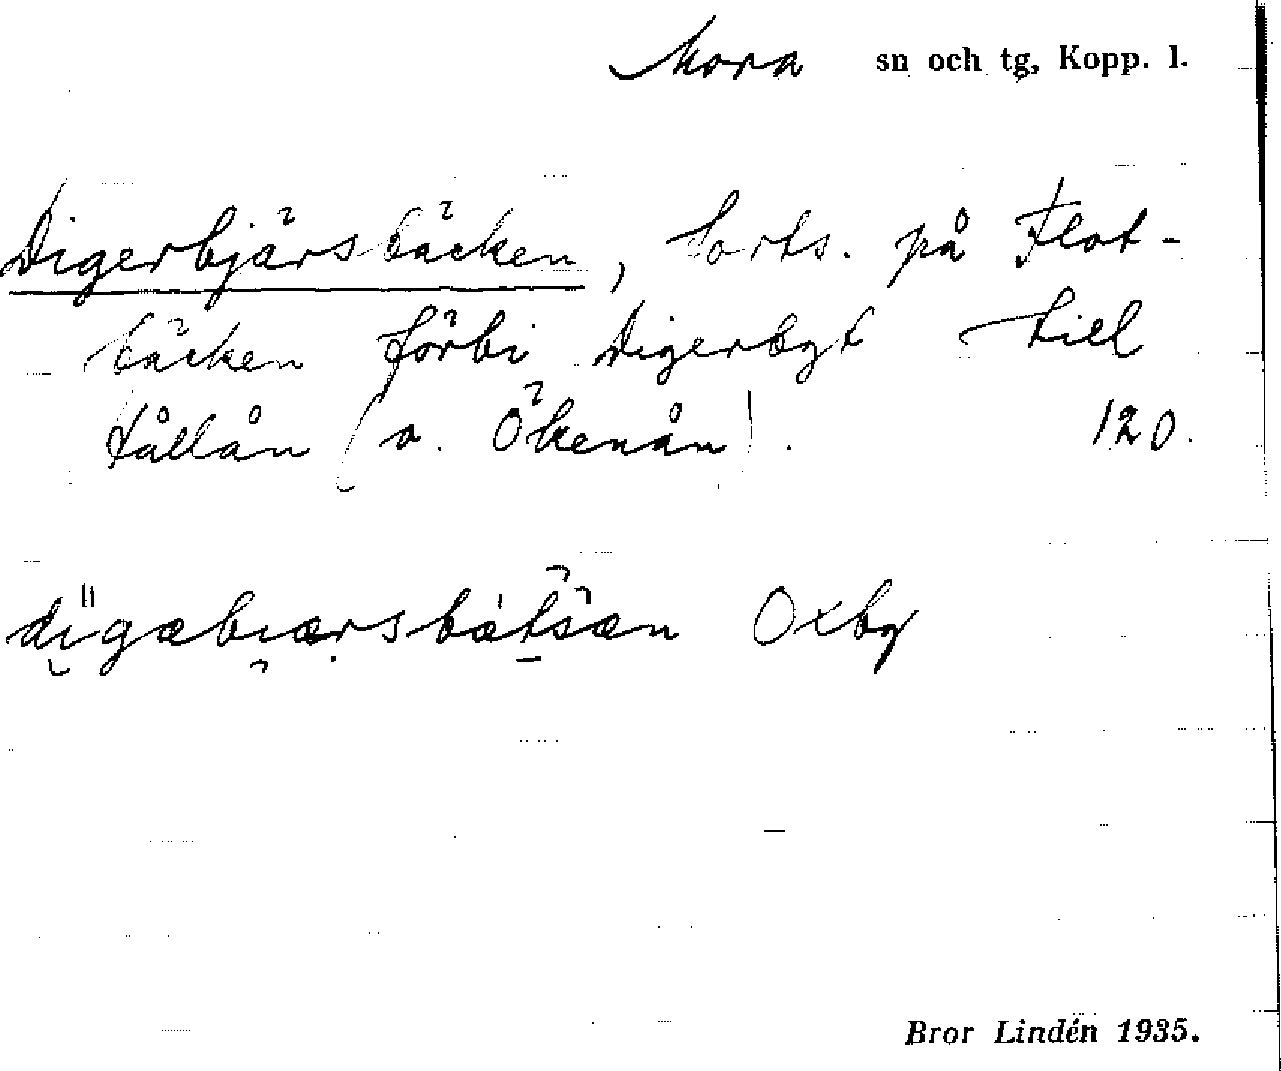 Mora sn och tg, Kopp. l.
Digerbjärsbäcken, forts. på Flot-
bäcken förbi Digerbyt till
fållån (o. Ökenån). 120.
digæbiærsbætsæn Oxby
Bror Lindén 1935.